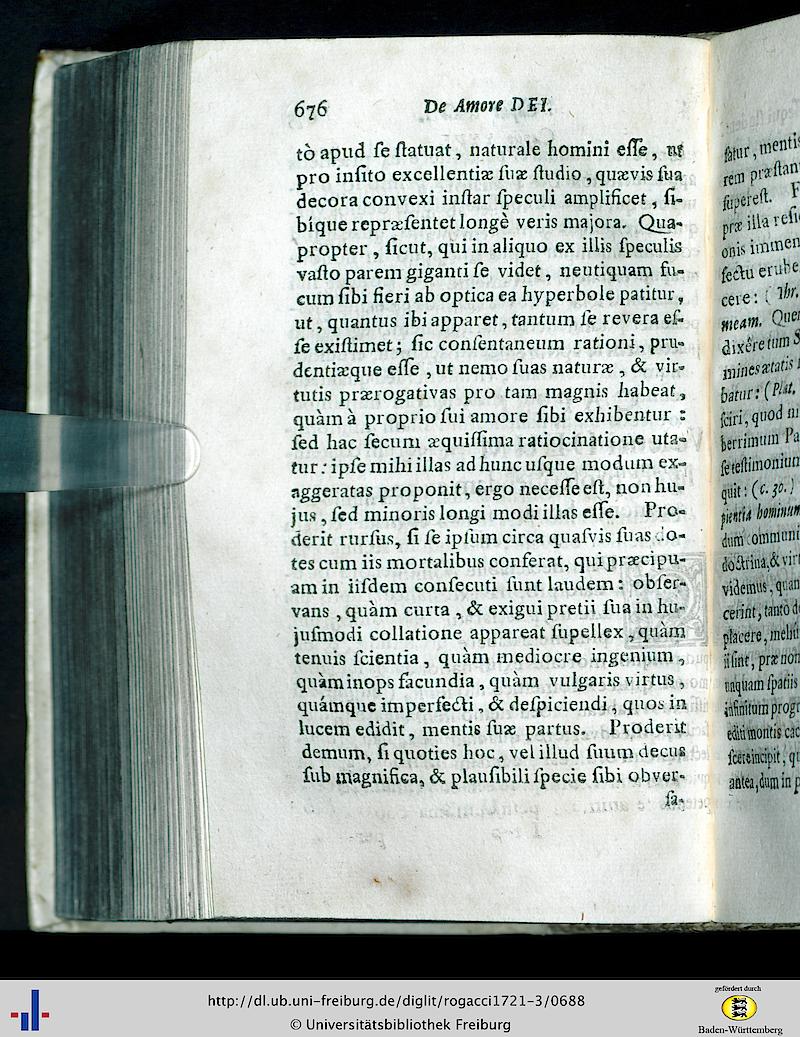 676 De Amore DEI.
tò apud ſe ſtatuat, naturale homini eſſe, ut
pro inſito excellentiæ ſuæ ſtudio, quævis ſua
decora convexi inſtar ſpeculi amplificet, ſi-
bíque repræſentet longè veris majora. Qua-
propter, ſicut, qui in aliquo ex illis ſpeculis
vaſto parem giganti ſe videt, neutiquam fu-
cum ſibi fieri ab optica ea hyperbole patitur,
ut, quantus ibi apparet, tantum ſe revera eſ-
ſe exiſtimet; ſic conſentaneum rationi, pru-
dentiæque eſſe, ut nemo ſuas naturæ, & vir-
tutis prærogativas pro tam magnis habeat,
quàm à proprio ſui amore ſibi exhibentur:
ſed hac ſecum æquiſſima ratiocinatione uta-
tur: ipſe mihi illas ad hunc uſque modum ex-
aggeratas proponit, ergo neceſſe eſt, non hu-
jus, ſed minoris longi modi illas eſſe. Pro-
derit rurſus, ſi ſe ipſum circa quaſvis ſuas do-
tes cum iis mortalibus conferat, qui præcipu-
am in iiſdem conſecuti ſunt laudem: obſer-
vans, quàm curta, & exigui pretii ſua in hu-
juſmodi collatione appareat ſupellex, quàm
tenuis ſcientia, quàm mediocre ingenium,
quàm inops facundia, quàm vulgaris virtus,
quámque imperfecti, & deſpiciendi, quos in
lucem edidit, mentis ſuæ partus. Proderit
demum, ſi quoties hoc, vel illud ſuum decus
ſub magnifica, & plauſibili ſpecie ſibi obver-
ſa-
ſatur, mentis
rem præſtan
ſupereſt. F
præ illa reſi
onis immen
fectu erube
cere: ( Thr.
meam. Quem
dixêre tum S
mines ætatis
batur: (Plat.
ſciri, quod ni
berrimum Pa
ſe teſtimonium
quit: (c. 30.)
pientia hominum
dum communi
doctrina, & virt
videmus, quan
cerint, tanto de
placere, meliù
ii ſint, præ non
unquam ſpatiis
infinitum progr
editi montis cac
ſcere incipit, qu
antea, dum in p
http://dl.ub.uni-freiburg.de/diglit/rogacci1721-3/0688
© Universitätsbibliothek Freiburg
gefördert durch
Baden-Württemberg